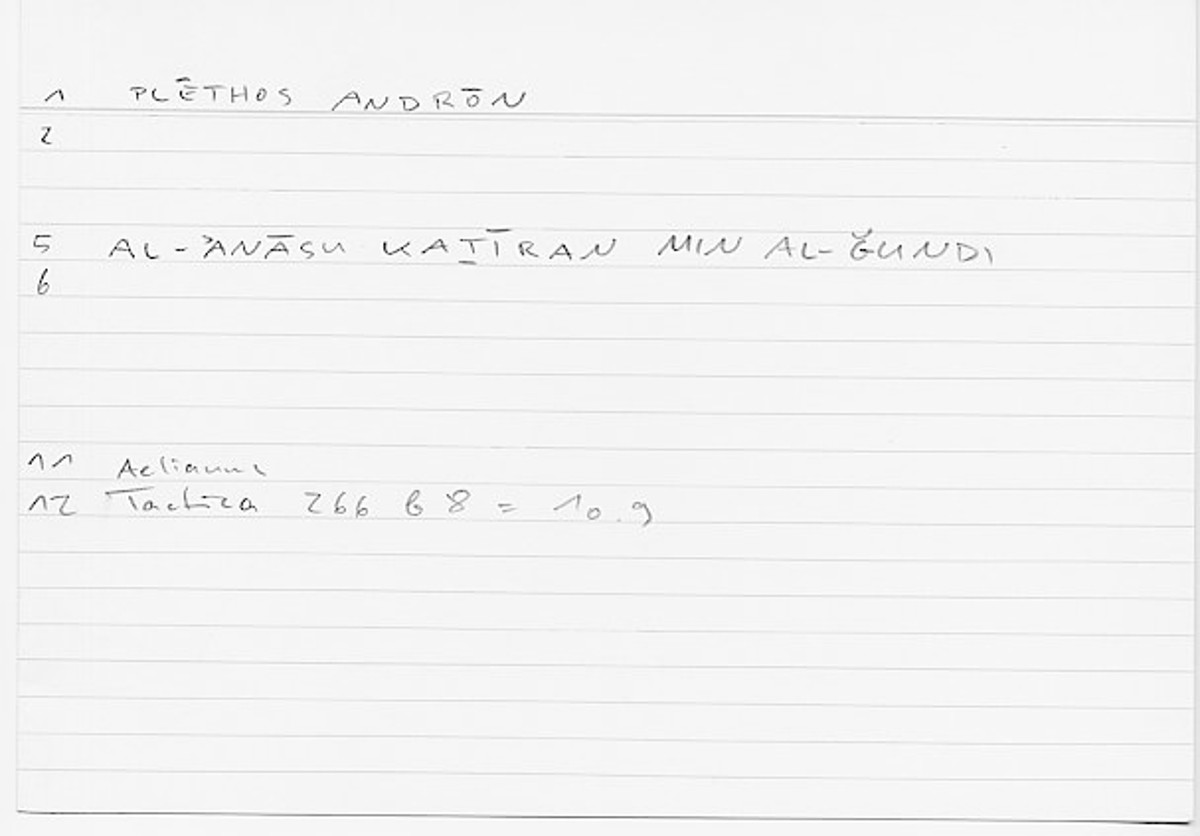 1 PLĒTHOS ANDRŌN
2
5 AL-ʾANĀSU KAṮĪRAN MIN AL-ǦUNDI
6
11 Aelianus
12 Tactica 266 b 8 = 10.9